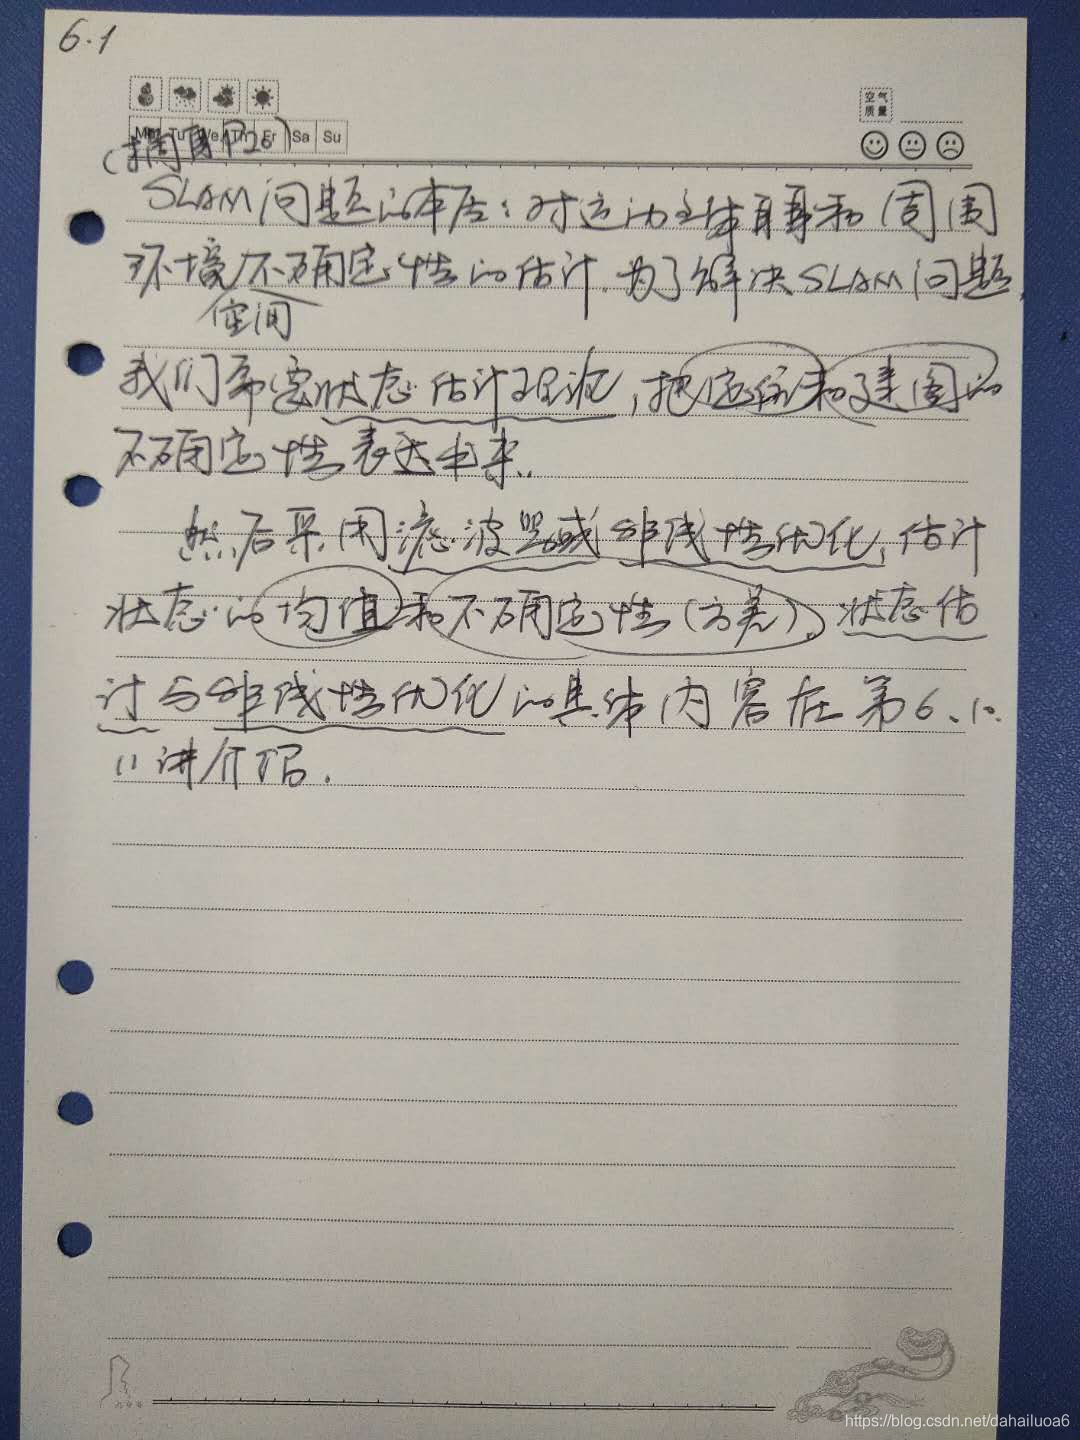 6.1
空气
质量
Mo Tu We Th Fr Sa Su
(摘自P20)
SLAM问题的本质:对运动主体自身和周围
环境不确定性的估计.为了解决SLAM问题,
空间
我们需要状态估计理论,把定位和建图的
不确定性表达出来.
然后采用滤波器或非线性优化,估计
状态的均值和不确定性(方差).状态估
计与非线性优化的具体内容在第6、10、
11讲介绍.
https://blog.csdn.net/dahailuoa6